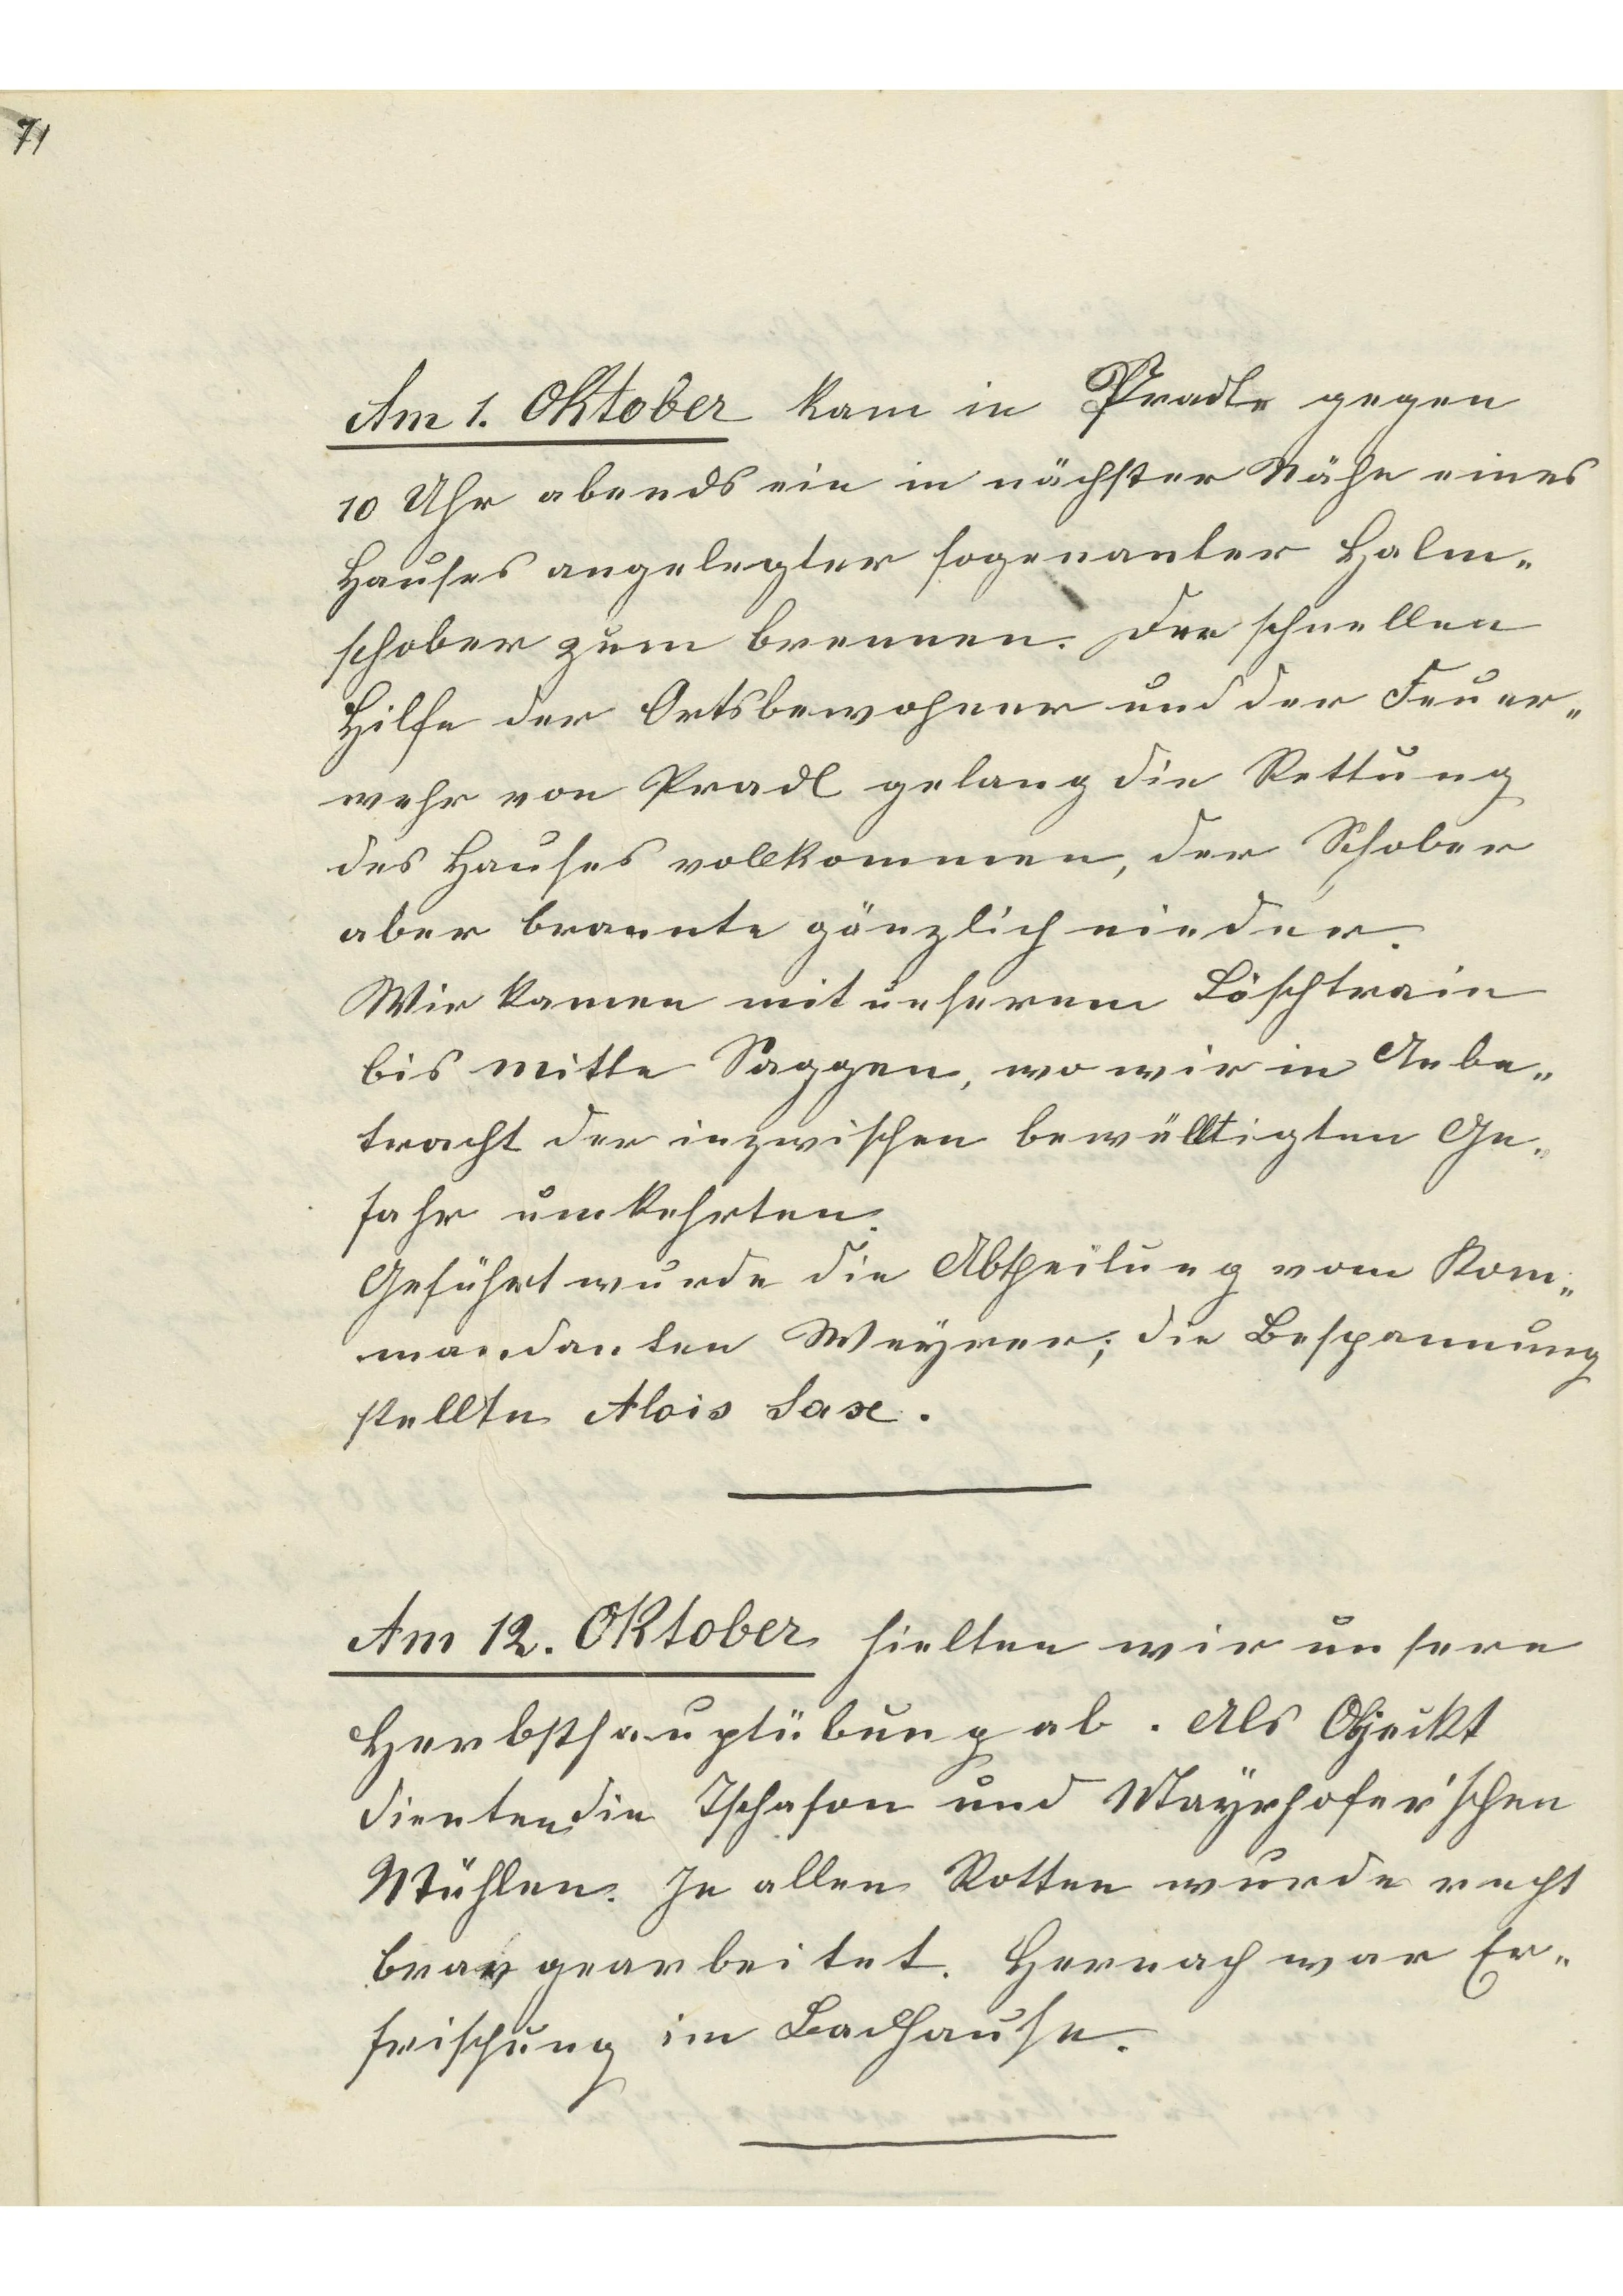 71
Am 1. Oktober kam in Pradl gegen
10 Uhr abends ein in nächster Nähe eines
Hauses angelegter sogenanter Halm-
schober zum brennen. Der schnellen
Hilfe der Ortsbewohner und der Feuer-
wehr von Pradl gelang die Rettung
des Hauses vollkommen, der Schober
aber brannte gänzlich nieder.
Wir kamen mit unserem Löschtrain
bis mitte Saggen, wo wir in Anbe-
tracht der inzwischen bewälltigten Ge-
fahr umkehrten.
Geführt wurde die Abtheilung vom Kom-
mandanten Weyrer; die Bespannung
stellte Alois Sax.
Am 12. Oktober hielten wir unsere
Herbsthauptübung ab. Als Objeckt
dienten die Tschafon und Mayrhofer'schen
Mühlen. In allen Rotten wurde recht
brav gearbeitet. Hernach war Er-
frischung im Badhause.